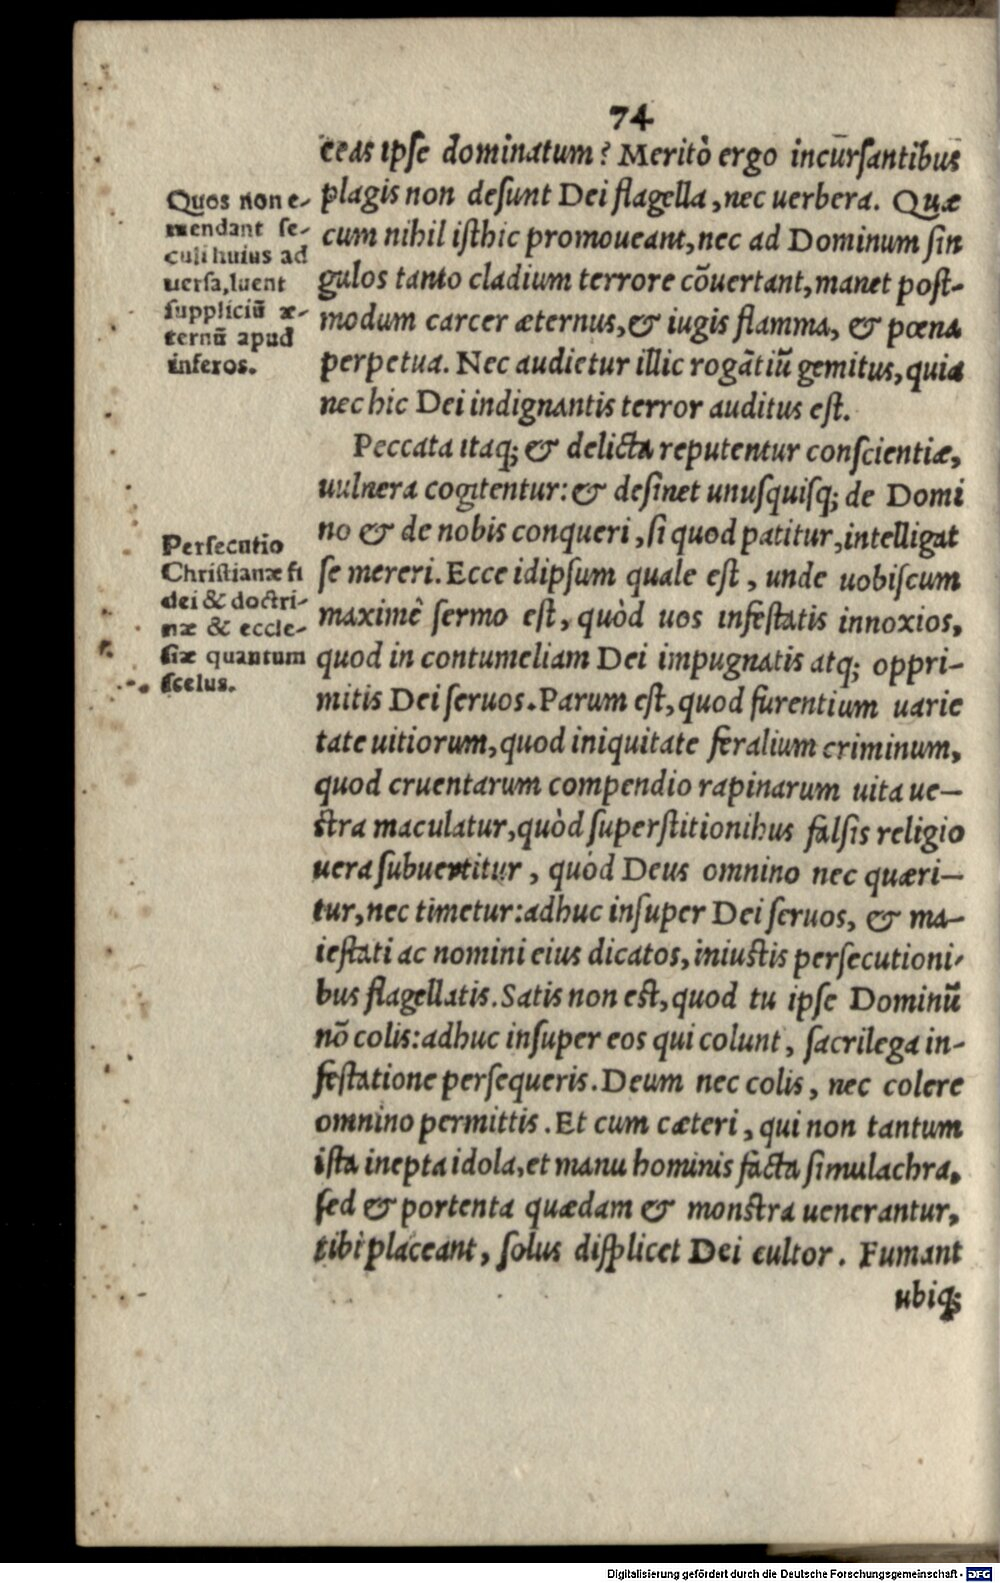 74
ceas ipse dominatum? Meritò ergo incursantibus
plagis non desunt Dei flagella, nec uerbera. Quæ
cum nihil isthic promoueant, nec ad Dominum sin
gulos tanto cladium terrore cõuertant, manet post-
modum carcer æternus, & iugis flamma, & pœna
perpetua. Nec audietur illic rogãtiũ gemitus, quia
nec hic Dei indignantis terror auditus est.
Quos non e-
mendant se-
culi huius ad
uersa, luent
suppliciũ æ-
ternũ apud
inferos.
Peccata itaq; & delicta reputentur conscientiæ,
uulnera cogitentur: & desinet unusquisq; de Domi
no & de nobis conqueri, si quod patitur, intelligat
se mereri. Ecce idipsum quale est, unde uobiscum
maximê sermo est, quòd uos infestatis innoxios,
quod in contumeliam Dei impugnatis atq; oppri-
mitis Dei seruos. Parum est, quod furentium uarie
tate uitiorum, quod iniquitate feralium criminum,
quod cruentarum compendio rapinarum uita ue-
stra maculatur, quòd superstitionibus falsis religio
uera subuertitur, quòd Deus omnino nec quæri-
tur, nec timetur: adhuc insuper Dei seruos, & ma-
iestati ac nomini eius dicatos, iniustis persecutioni-
bus flagellatis. Satis non est, quod tu ipse Dominũ
nõ colis: adhuc insuper eos qui colunt, sacrilega in-
festatione persequeris. Deum nec colis, nec colere
omnino permittis. Et cum cæteri, qui non tantum
ista inepta idola, et manu hominis facta simulachra,
sed & portenta quædam & monstra uenerantur,
tibi placeant, solus displicet Dei cultor. Fumant
ubiq;
Persecutio
Christianæ fi
dei & doctri-
næ & eccle-
siæ quantum
scelus.
Digitalisierung gefördert durch die Deutsche Forschungsgemeinschaft - DFG